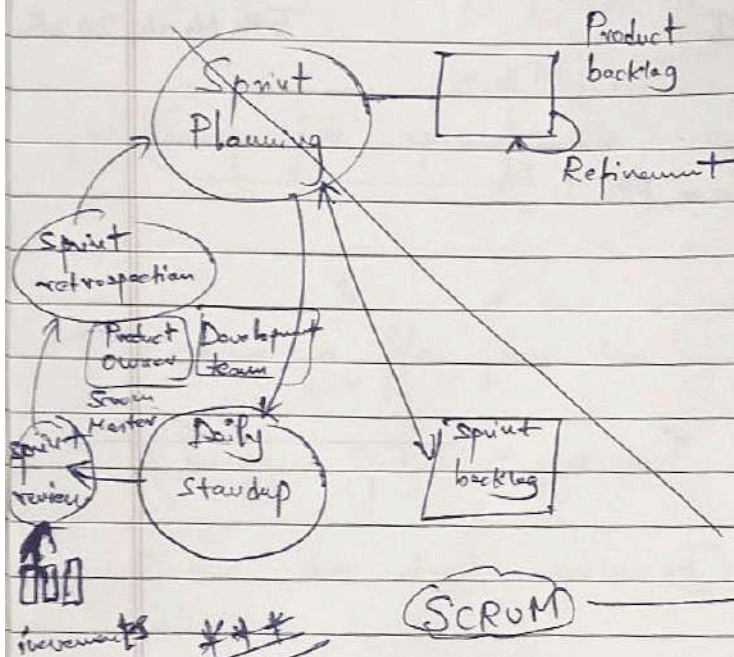 Sprint
Planning
Product
backlog
Refinement
Sprint
retrospection
Product
owner
Development
team
Scrum
Master
Daily
standup
sprint
review
sprint
backlog
increments
SCRUM